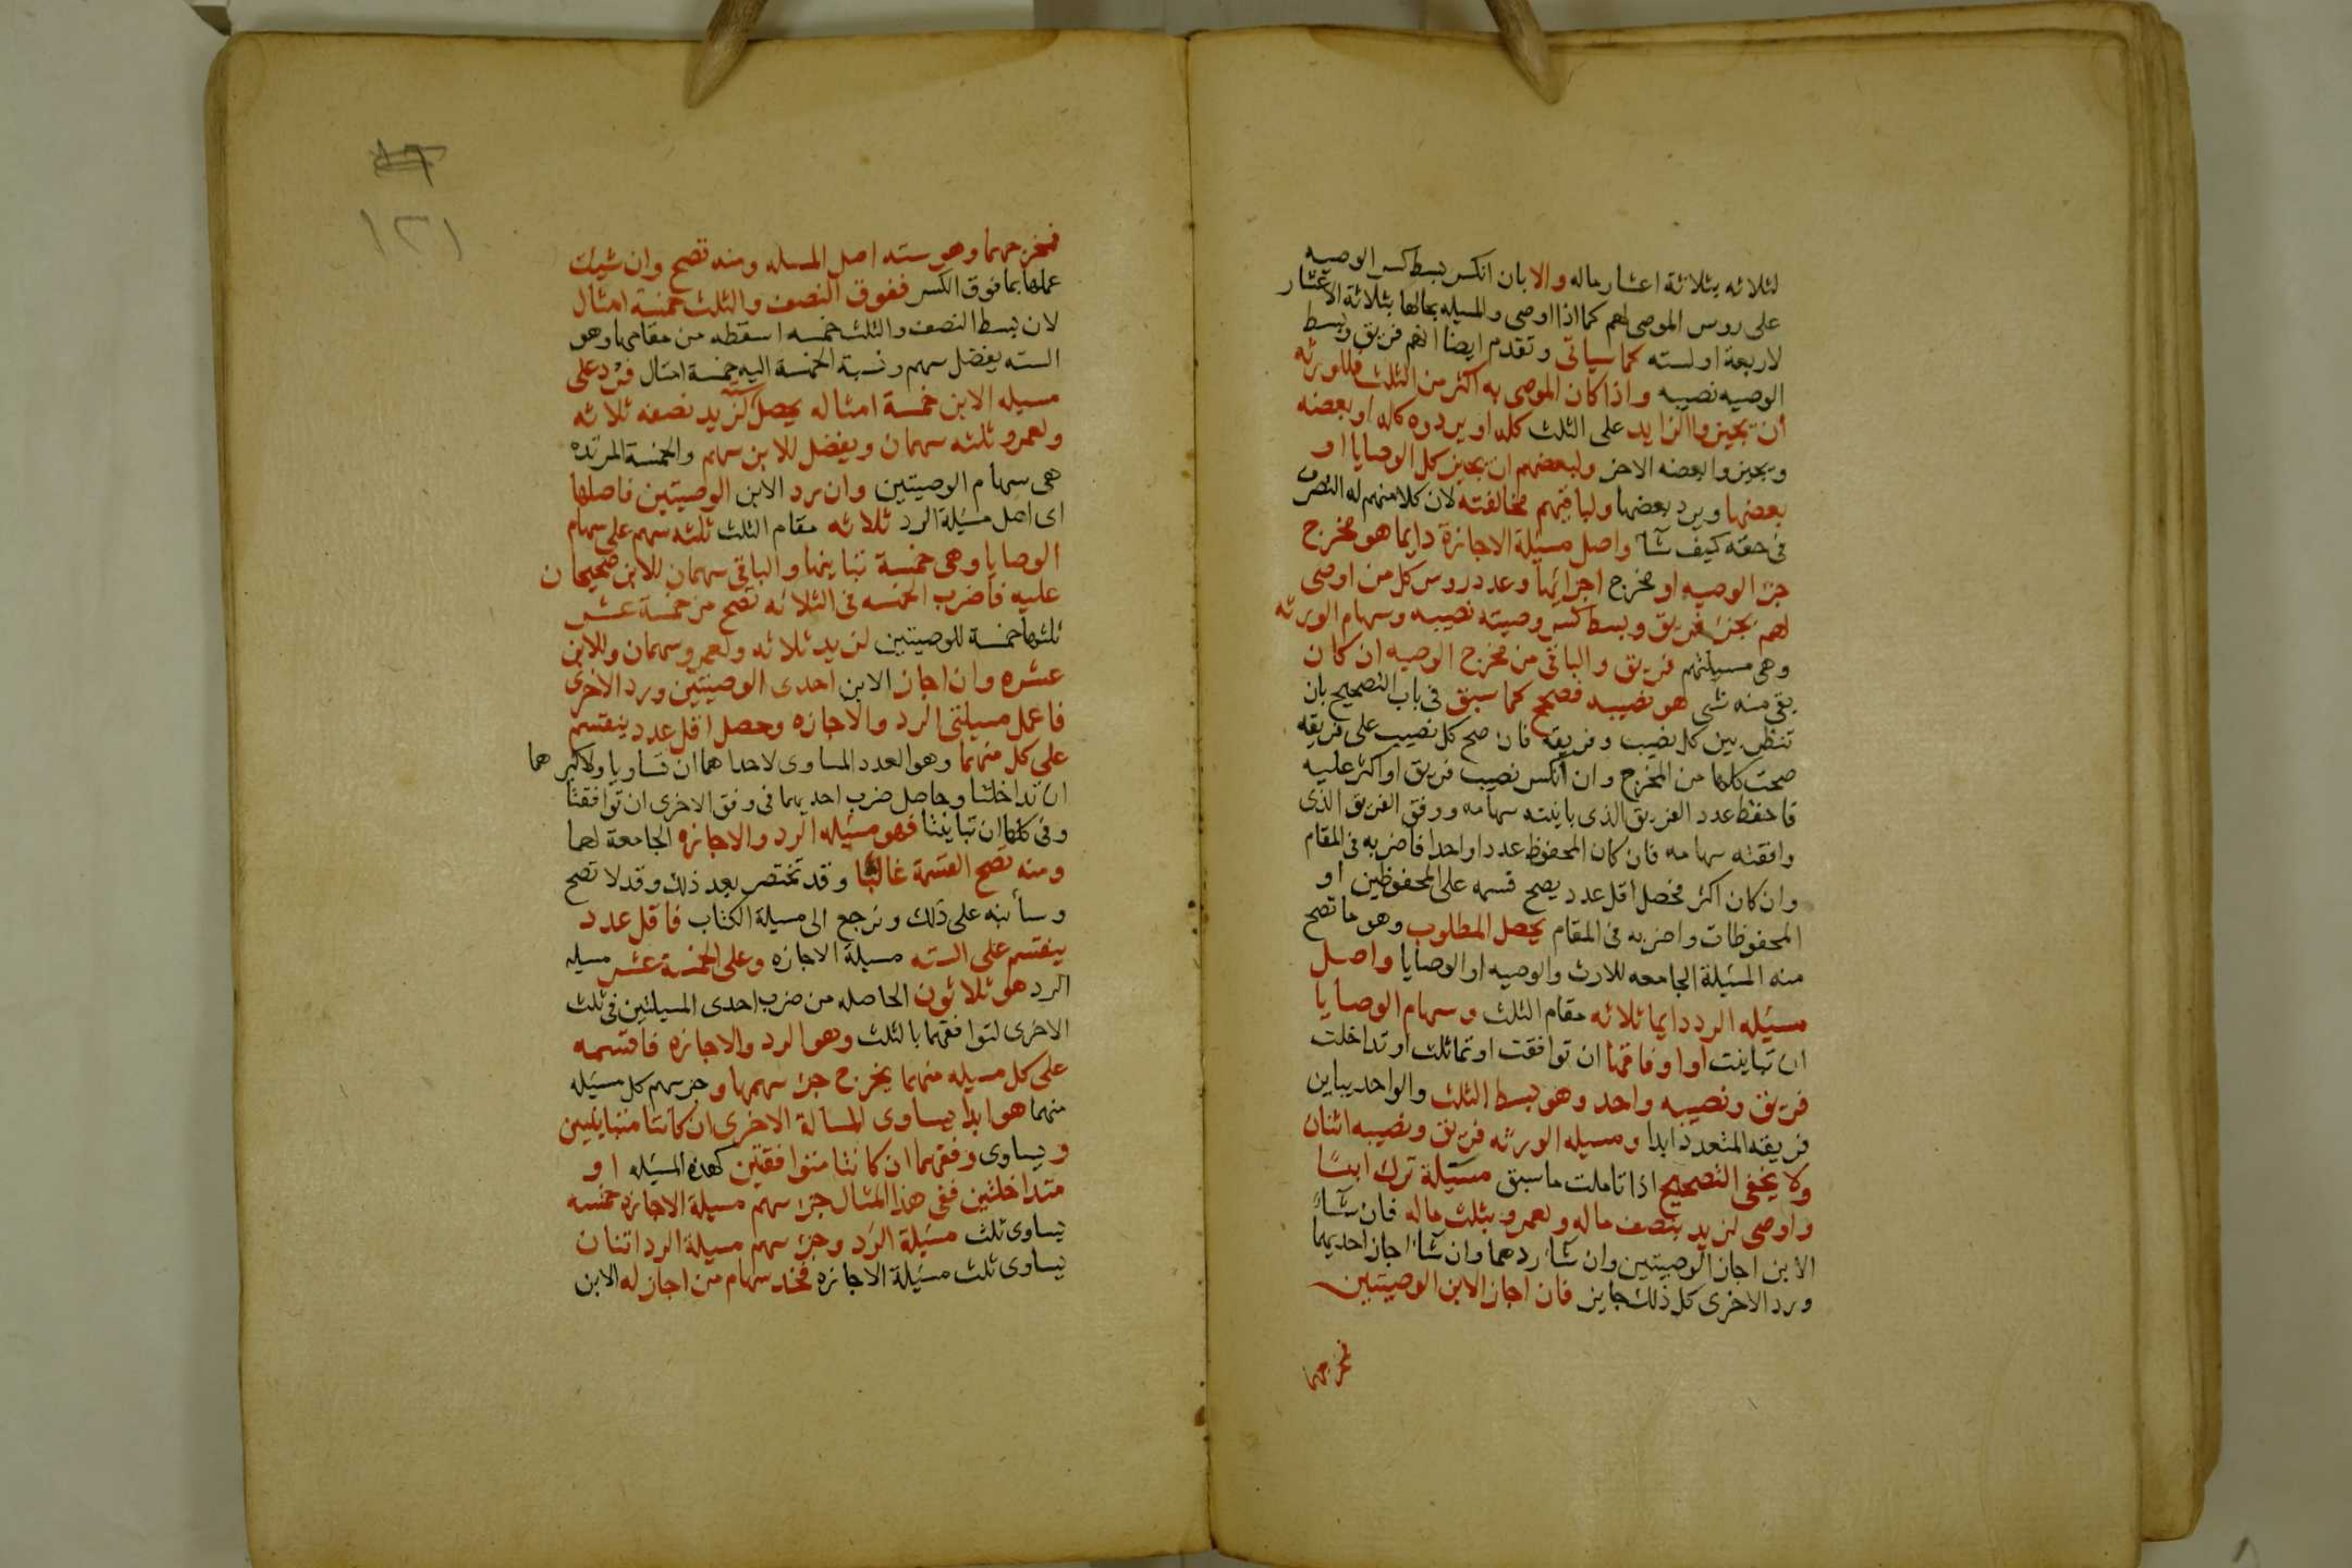 لثلاثه بثلاثة اعشار ماله والا بان انكسر بسط كسر الوصيه
على روس الموصى لهم كما اذا اوصى والمسيله بحالها بثلاثة الاعشار
لاربعة او لسته كما سياتى وتقدم ايضا انهم فريق وبسط
الوصيه نصيبه واذا كان الموصى به اكثر من الثلث فللورثه
أن يجيزوا الزايد على الثلث كله او يردوه كله او بعضه
ويجيزوا بعضه الاخر ولبعضهم ان يجيز كل الوصايا او
بعضها ويرد بعضها ولباقيهم مخالفته لان كلا منهم له التصرف
فى حقه كيف شآ واصل مسئلة الاجازة دايما هو مخرج
جزء الوصيه او مخرج اجزائها وعدد روس كل من اوصى
لهم بجزء فريق وبسط كسر وصيته نصيبه وسهام الورثه
وهى مسيلتهم فريق والباقى من مخرج الوصيه ان كان
بقى منه شى هو نصيبه فصحح كما سبق فى باب التصحيح بان
تنظر بين كل نصيب وفريقه فان صح كل نصيب على فريقه
صحت كلها من المخرج وان انكسر نصيب فريق او اكثر عليه
فاحفظ عدد الفريق الذى باينته سهامه ووفق الفريق الذى
وافقته سهامه فان كان المحفوظ عددا واحدا فاضربه فى المقام
وان كان اكثر فحصل اقل عدد يصح قسمه على المحفوظين او
المحفوظات واضربه فى المقام يحصل المطلوب وهو ما تصح
منه المسئلة الجامعه للارث والوصيه او الوصايا واصل
مسئله الرد دايما ثلاثه مقام الثلث وسهام الوصايا
ان تباينت او اوفاقها ان توافقت او تماثلت او تداخلت
فريق ونصيبه واحد وهو بسط الثلث والواحد يباين
فريقه المتعدد ابدا ومسيله الورثه فريق ونصيبه اثنان
ولا يخفى التصحيح اذا تاملت ما سبق مسئلة ترك ابنًا
واوصى لزيد بنصف ماله ولعمرو بثلث ماله فان شآء
الابن اجاز الوصيتين وان شآ ردهما وان شآ اجاز احديهما
ورد الاخرى كل ذلك جايز فان اجاز الابن الوصيتين
فمخرجهما
١٢١
فمخرجهما وهو سته اصل المسله ومنه تصح وان شيت
عملها بما فوق الكسر ففوق النصف والثلث خمسة امثال
لان بسط النصف والثلث خمسه اسقطه من مقامها وهو
السته يفضل سهم ونسبة الخمسة اليه خمسة امثال فزد على
مسيله الابن خمسة امثاله يحصل سته لزيد نصفه ثلاثه
ولعمرو ثلثه سهمان ويفضل للابن سهم والخمسة المزتده
هى سهام الوصيتين وان رد الابن الوصيتين فاصلها
اى اصل مسئلة الرد ثلاثه مقام الثلث ثلثه سهم على سهام
الوصايا وهى خمسة تباينها والباقى سهمان للابن صحيحان
عليه فاضرب الخمسه فى الثلاثه تصح من خمسة عشر
ثلثها خمسة للوصيتين لزيد ثلاثه ولعمرو سهمان وللابن
عشره وان اجاز الابن احدى الوصيتين ورد الاخرى
فاعمل مسيلتى الرد والاجازه وحصل اقل عدد ينقسم
على كل منهما وهو العدد المساوى لاحداهما ان تساويا ولاكبرهما
ان تداخلتا وحاصل ضرب احديهما فى وفق الاخرى ان توافقتا
وفى كلها ان تباينتا فهو مسئله الرد والاجازه الجامعة لهما
ومنه تصح القسمة غالبًا وقد تختصر بعد ذلك وقد لا تصح
وسأنبه على ذلك ونرجع الى مسيلة الكتاب فاقل عدد
ينقسم على السته مسيلة الاجازه وعلى الخمسة عشر مسيله
الرد هو ثلاثون الحاصله من ضرب احدى المسيلتين فى ثلث
الاخرى لتوافقهما بالثلث وهو الرد والاجازه فاقسمه
على كل مسيله منهما يخرج جزء سهمها وجز سهم كل مسئله
منهما هو ابدا يساوى المسالة الاخرى ان كانتا متباينتين
ويساوى وفقهما ان كانتا متوافقتين كهذه المسئله او
متداخلتين ففى هذا المثال جزء سهم مسيلة الاجازه خمسه
يساوى ثلث مسئلة الرد وجزء سهم مسيلة الرد اثنان
يساوى ثلث مسئلة الاجازه فخذ سهام من اجاز له الابن